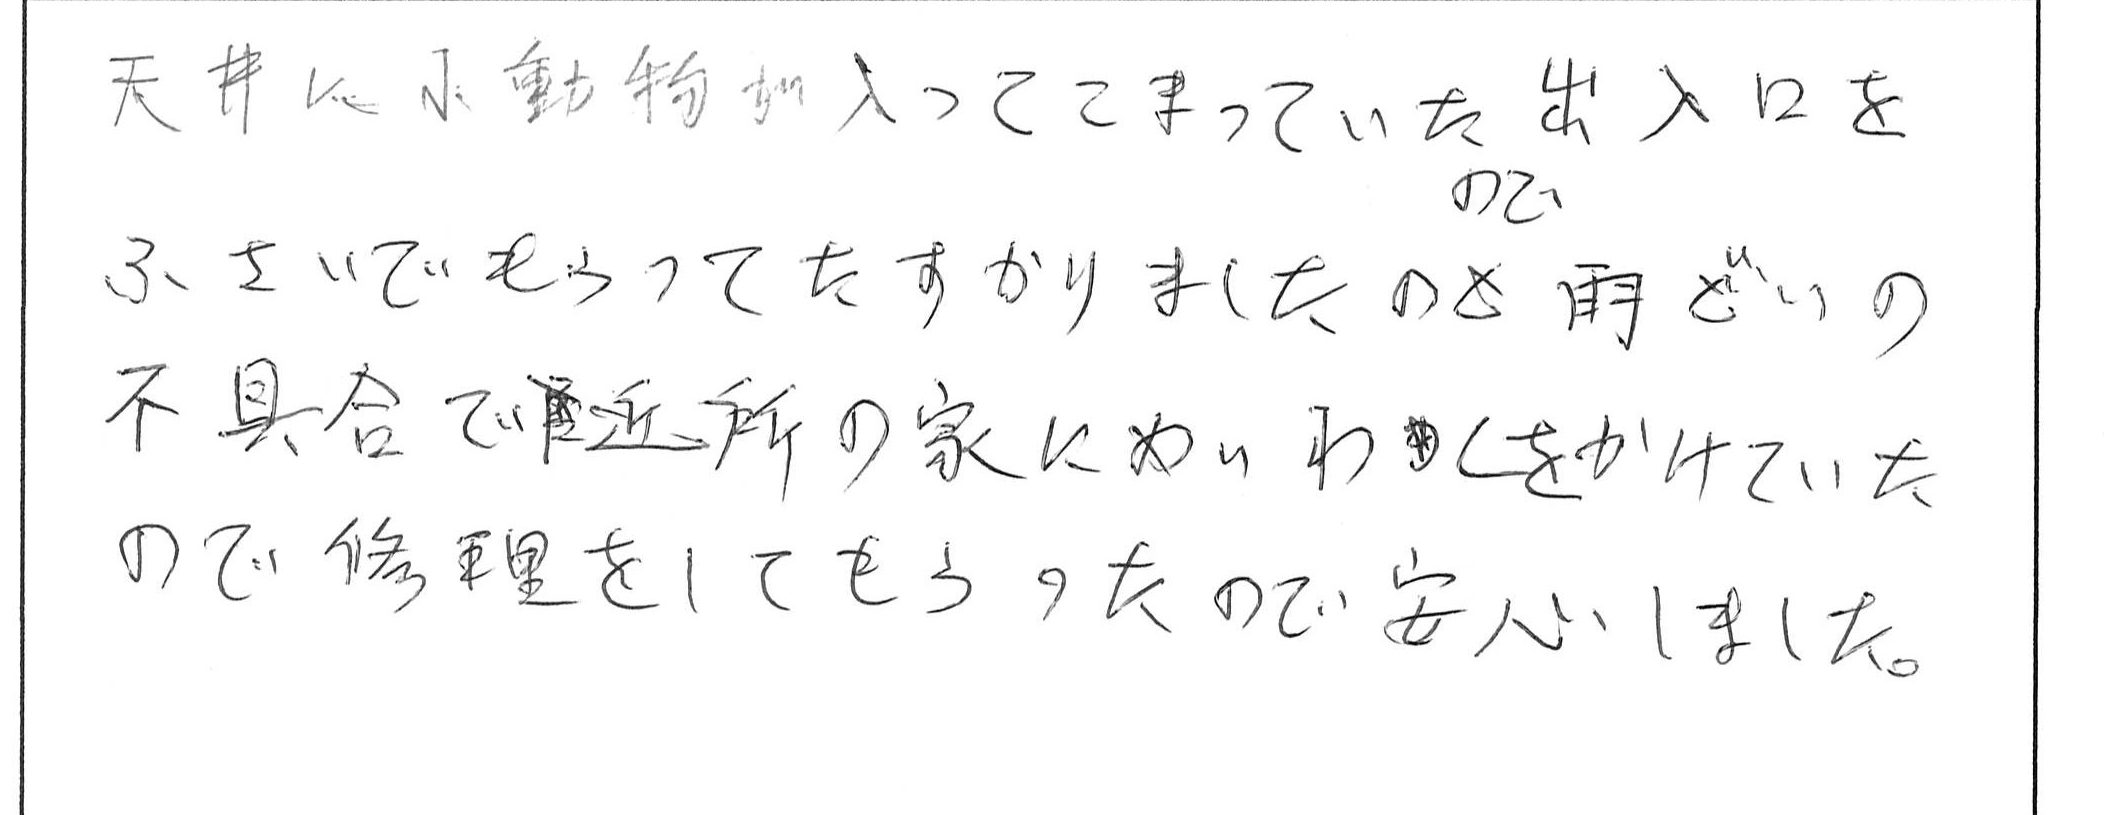 天井に小動物が入ってこまっていた出入口を
ので
ふさいでもらってたすかりましたのと雨どいの
不具合で近所の家にめいわくをかけていた
ので修理をしてもらったので安心しました。